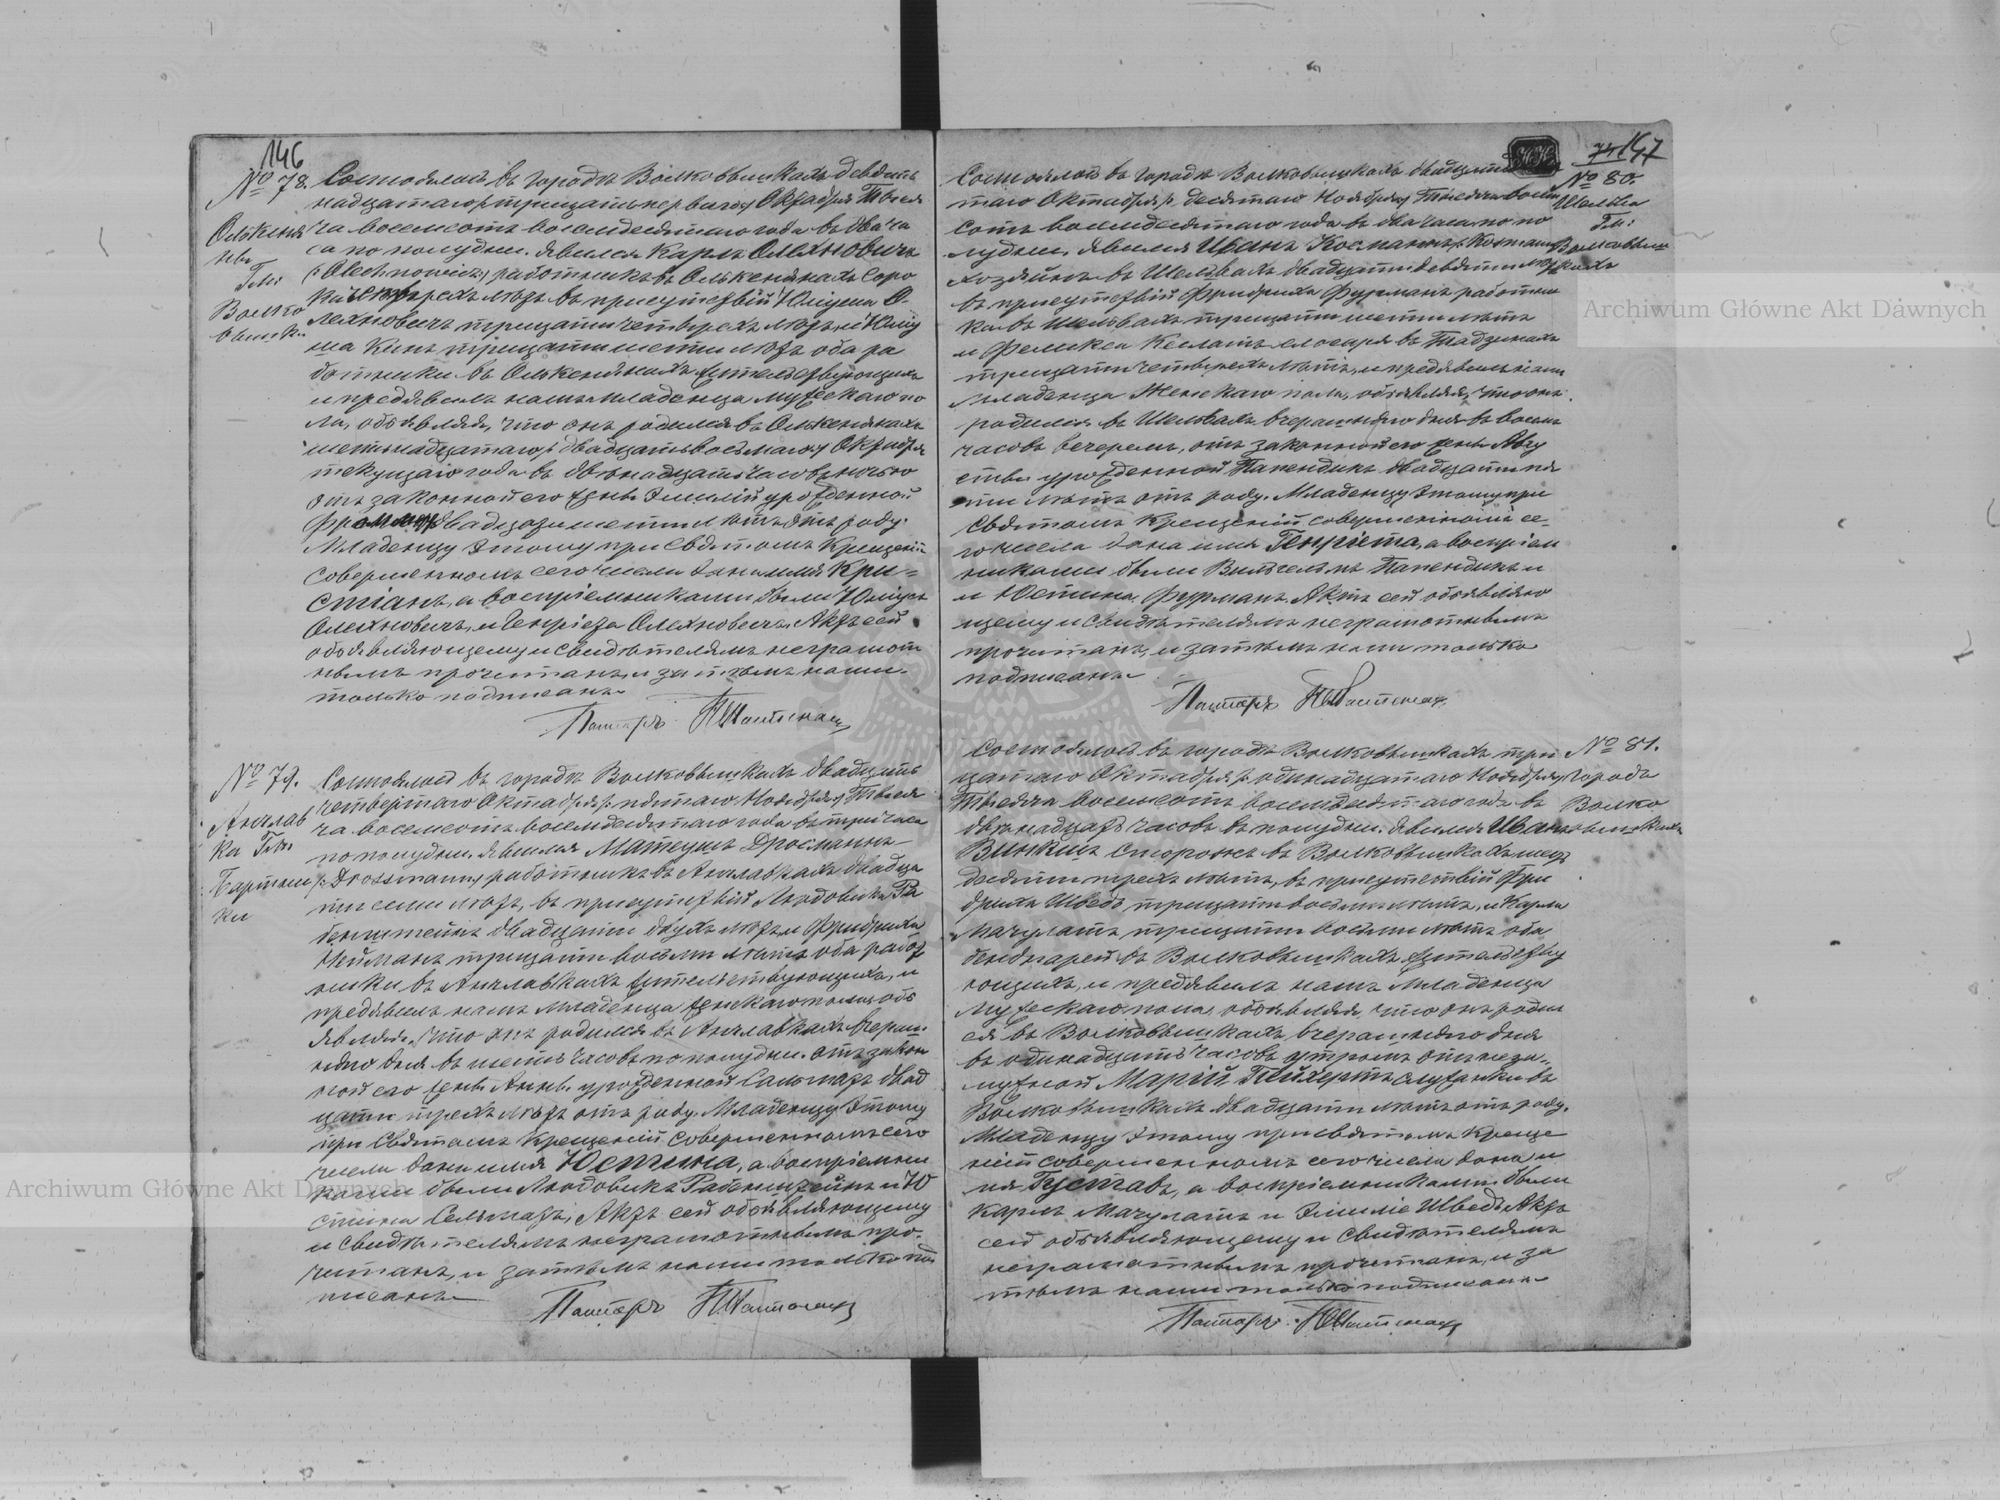 146
№ 78.
Олькеня
ны
Гм:
Волко
вышки
Состоялось въ городѣ Волковышкахъ девят
надцатаго /: тридцать перваго :/ Октября Тыся
ча восемсотъ восемдесятаго года въ два ча
са по полудни. Явился Карлъ Олехновичъ
(: Olechnowicz :) работникъ въ Олькенянахъ соро
ка четырехъ лѣтъ въ присутствіи Юліуса О
лехновичъ тридцати четырехъ лѣтъ, и Юліу
ша Кинъ тридцати шести лѣтъ оба ра
ботники въ Олькенянахъ жительствующихъ
и предъявилъ намъ младенца мужескаго по
ла, объявляя, что онъ родился въ Олькенянахъ
шестьнадцатаго /: двадцать восьмаго :/ Октября
текущаго года въ двѣнадцать часовъ ночью
отъ законной его жены Эмиліи урожденной
двадцати шести лѣтъ отъ роду.
Младенцу этому при Святомъ Крещеніи
совершенномъ сего числа дано имя Кри-
стіанъ, а воспріемниками были Юліусъ
Олехновичъ, и Генріета Олехновичъ. Актъ сей
объявляющему и свидѣтелямъ неграмот
нымъ прочитанъ, и затѣмъ нами
только подписанъ.
Пасторъ
№ 79.
Анчлав
ка Гм.
Бартни
ки
Состоялось въ городѣ Волковышкахъ двадцать
четвертаго Октября /: пятаго Ноября :/ Тыся
ча восемсотъ восемдесятаго года въ три часа
по полудни. Явился Матеушъ Дросманнъ
/: Drossmann :/ работникъ въ Анчлавкахъ двадца
ти семи лѣтъ, въ присутствіи Людовика Ра
бенштейнъ двадцати двухъ лѣтъ и Фридриха
Нейманъ тридцати восьми лѣтъ оба работ
ники въ Анчлавкахъ жительствующихъ, и
предъявилъ намъ младенца женскаго пола, объ
являя, что онъ родился въ Анчлавкахъ вчераш
няго дня въ шесть часовъ по полудни отъ закон
ной его жены Анны урожденной двад
цати трехъ лѣтъ отъ роду. Младенцу этому
при Святомъ Крещеніи совершенномъ сего
числа дано имя Юстина, а воспріемни
ками были Людовикъ Рабенштейнъ и Ю
стина Актъ сей объявляющему
и свидѣтелямъ неграмотнымъ про-
читанъ, и затѣмъ нами только под
писанъ.
Пасторъ
147
№ 80.
Шельва
Гм:
Волковыш
кахъ
Состоялось въ городѣ Волковышкахъ двадцать
таго Октября /: десятаго Ноября :/ Тысяча восем
сотъ восемдесятаго года въ два часа по по
лудни. Явился Иванъ Косманнъ
хозяинъ въ Шельвахъ двадцати девяти лѣтъ
въ присутствіи Фридриха Фурманъ работни
ка въ Шельвахъ тридцати шести лѣтъ
и Феликса слесаря въ
тридцати четырехъ лѣтъ, и предъявилъ намъ
младенца Женскаго пола, объявляя, что онъ
родился въ Шельвахъ вчерашняго дня въ восемь
часовъ вечеромъ, отъ законной его жены Авгу
сты урожденной Папендикъ двадцати пя
ти лѣтъ отъ роду. Младенцу этому при
Святомъ Крещеніи совершенномъ се-
го числа дано имя Генріета, а воспріем
никами были Вильгельмъ Папендикъ и
и Юстина Фурманъ. Актъ сей объявляю
щему и свидѣтелямъ неграмотнымъ
прочитанъ, и затѣмъ нами только
подписанъ.
Пасторъ
№ 81.
городъ
Волко
вышкахъ
Состоялось въ городѣ Волковышкахъ трид
цатаго Октября /: одинадцатаго Ноября :/
Тысяча восемсотъ восемдесятаго года въ
двѣнадцать часовъ въ полудни. Явился Иванъ
сторожъ въ Волковышкахъ шесть
десяти трехъ лѣтъ, въ присутствіи Фри
дриха Шведъ тридцати восьми лѣтъ, и Карла
Мачулатъ тридцати восьми лѣтъ оба
въ Волковышкахъ жительству
ющихъ, и предъявилъ намъ младенца
мужескаго пола, объявляя, что онъ родил
ся въ Волковышкахъ вчерашняго дня
въ одинадцать часовъ утромъ отъ неза-
мужной Маріи служанки въ
Волковышкахъ двадцати лѣтъ отъ роду.
Младенцу этому при святомъ Креще
ніи совершенномъ сего числа дано и
мя Густавъ, а воспріемниками были
Карлъ Мачулатъ и Эмилія Шведъ. Актъ
сей объявляющему и свидѣтелямъ
неграмотнымъ прочитанъ, и за
тѣмъ нами только подписанъ.
Пасторъ
Archiwum Główne Akt Dawnych
Archiwum Główne Akt Dawnych